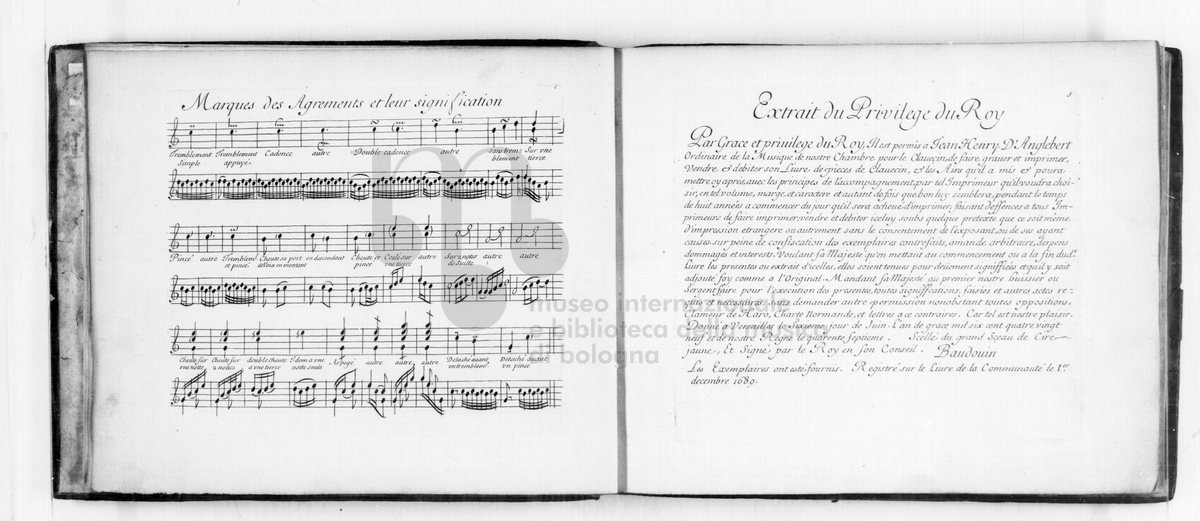 Marques des Agrements et leur signification
Tremblement Tremblement Cadence autre Double cadence autre sans trem= Sur vne
Simple appuyé blement tierce
Pincé autre Tremblem^t Cheute ou port en descendant Cheute et Coulé sur autre Sur 2 notes autre autre
et pincé de voix en montant pincé vne tierce de Suitte
Cheute sur Cheute sur double cheute Idem a vne Arpegé autre autre autre Detaché auant Detaché auant
vne notte 2 nottes a vne tierce notte seule vn tremblem^t vn pincé
5
Extrait du Privilege du Roy
Par Grace et priuilege du Roy, Il est permis a Jean Henry D'Anglebert
Ordinaire de la Musique de nostre Chambre pour le Clauecin, de faire grauer et imprimer,
Vendre, & debiter son Liure de pieces de Clauecin, & les Airs qu'il a mis & poura
mettre cy apres, auec les principes de l'accompagnement, par tel Imprimeur qu'il voudra choi=
sir, en tel volume, marge, et caractere et autant de fois que bon luy semblera, pendant le temps
de huit années a commencer du jour qu'il sera acheué d'imprimer, faisant deffences a tous Im=
primeurs de faire imprimer, vendre et debiter iceluy soubs quelque pretexte que ce soit méme
d'impression etrangere ou autrement sans le consentement de l'exposant, ou de ses ayant
causes sur peine de confiscation des exemplaires contrefaits, amande arbitraire, despens
dommages et interests. Voulant sa Majesté qu'en mettant au commencement ou a la fin dud^t
Liure les presentes ou extrait d'icelles, elles soient tenues pour deüement signiffiées et qu'il y soit
adjouté foy comme a l'Original. Mandant sa Majesté au premier nostre huissier ou
Sergent, faire pour l'execution des presentes, toutes signiffications, saisies et autres actes re=
quis et necessaires, sans demander autre permission nonobstant toutes oppositions,
Clameur de Haro, Charte Normande, et lettres a ce contraires. Car tel est nostre plaisir.
Donné a Versailles le Sixieme jour de Juin. L'an de grace mil six cent quatre vingt
neuf et de nostre Regne le quarente septieme. Scellé du grand Sceau de Cire
jaune, Et Signé par le Roy en son Conseil. Baudouin
Les Exemplaires ont esté fournis. Registré sur le Liure de la Communauté le 1^er
decembre 1689.
museo internazionale
e biblioteca della musica
di bologna